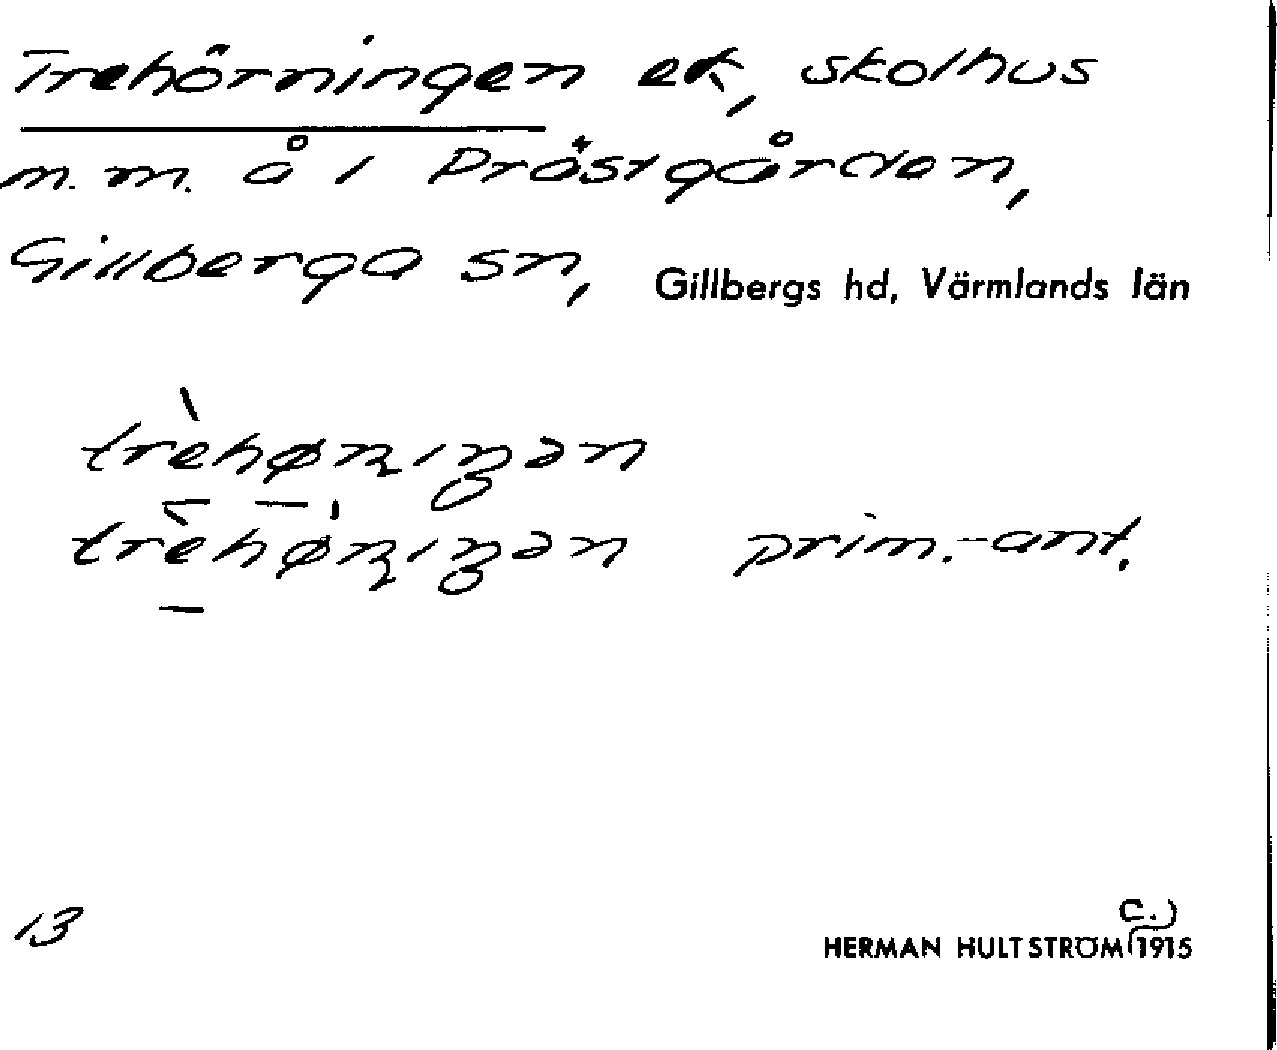 Trehörningen ek, skolhus
m.m. å 1 Prästgården,
Gillberga sn, Gillbergs hd, Värmlands län
prim.-ant.
13
c.)
HERMAN HULTSTRÖM (1915